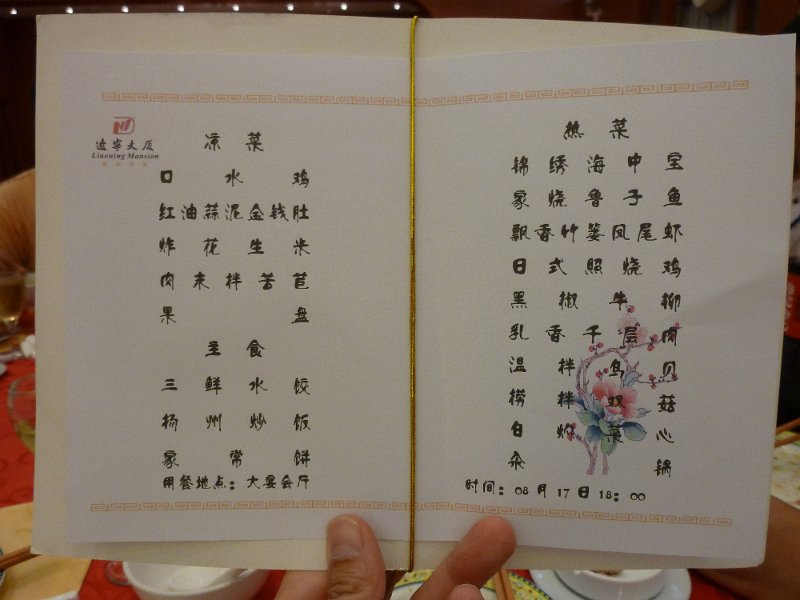 辽宁大厦
Liaoning Mansion
凉菜
口水鸡
红油蒜泥金钱肚
炸花生米
肉末拌苦苣
果盘
主食
三鲜水饺
扬州炒饭
家常饼
用餐地点：大宴会厅
热菜
锦绣海中宝
家烧鲁子鱼
飘香竹篓凤尾虾
日式照烧鸡
黑椒牛柳
乳香千层肉
温拌鸟贝
捞拌双菇
白灼菜心
汆锅
时间：08月17日18：00